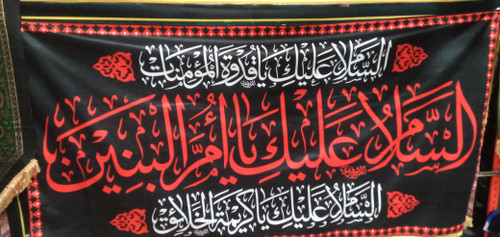 السَّلامُ عَلَيْكِ يا قُدْوَةَ المُؤْمِناتِ
السَّلامُ عَلَيْكِ يا أُمَّ البَنِينَ
السَّلامُ عَلَيْكِ يا كَرِيمَةَ الخَلائِقِ